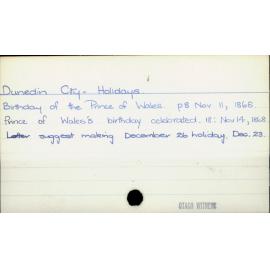 Dunedin City - Holidays.
Birthday of the Prince of Wales. p8 Nov 11, 1865.
Prince of Wales's birthday celebrated. 18: Nov 14, 1868.
Letter suggest making December 26 holiday. Dec. 23.
OTAGO WITNESS